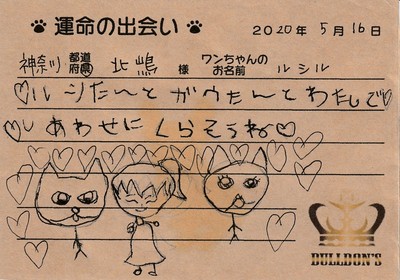 🐾 運命の出会い 🐾 2020年 5月 16日
神奈川 都道府県 北嶋 様 ワンちゃんのお名前 ルシル
♡ルシたんとガウたんとわたしで♡
♡しあわせにくらそうね♡
BULLDON'S